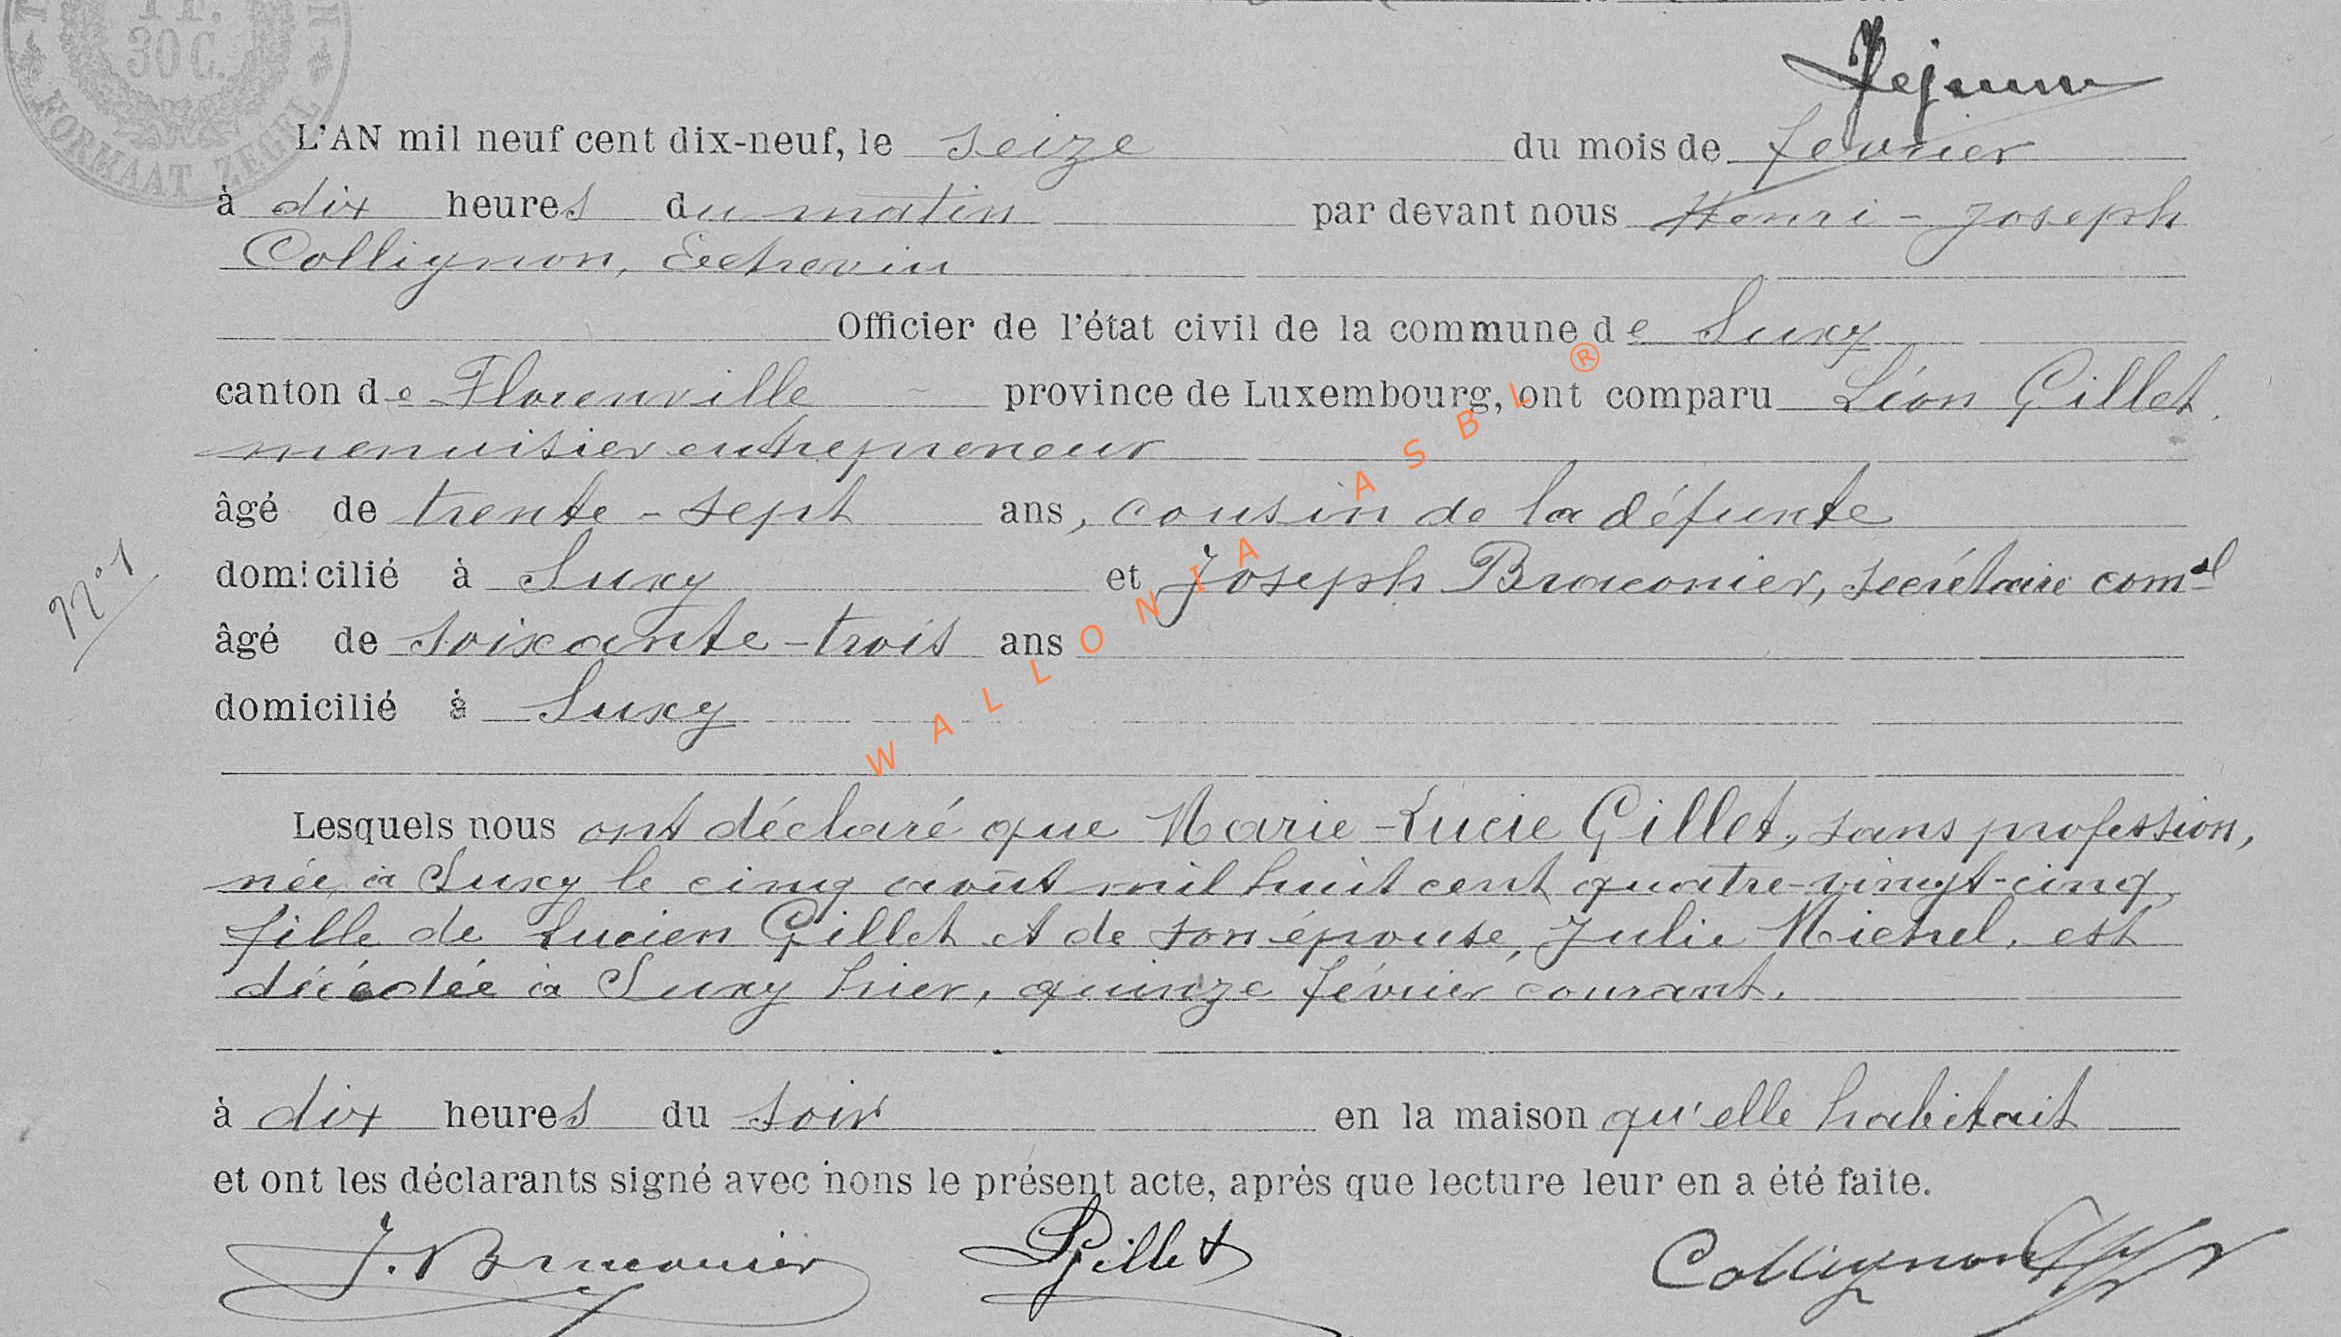 30 C.
FORMAAT ZEGEL
Lejeune
L'AN mil neuf cent dix-neuf, le seize du mois de février
à dix heures du matin par devant nous Henri-Joseph
Collignon, Echevin
Officier de l'état civil de la commune de Suxy
canton de Florenville province de Luxembourg, ont comparu Léon Gillet,
menuisier entrepreneur
âgé de trente-sept ans, cousin de la défunte
domicilié à Suxy et Joseph Braconier, secrétaire comal
N° 1
âgé de soixante-trois ans
domicilié à Suxy
WALLONIA ASBL ®
Lesquels nous ont déclaré que Marie-Lucie Gillet, sans profession,
née à Suxy le cinq août mil huit cent quatre-vingt-cinq
fille de Lucien Gillet et de son épouse, Julie Michel, est
décédée à Suxy hier, quinze février courant.
à dix heures du soir en la maison qu'elle habitait
et ont les déclarants signé avec nons le présent acte, après que lecture leur en a été faite.
J. Braconier LGillet Collignon